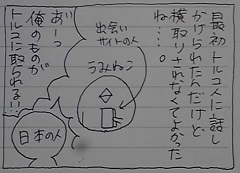 最初トルコ人に話し
かけられたんだけど
横取りされなくてよかった
ね…。
出会い
サイトの人
うみねこ
あーっ
俺のものが
トルコに取られる!!
日本の人